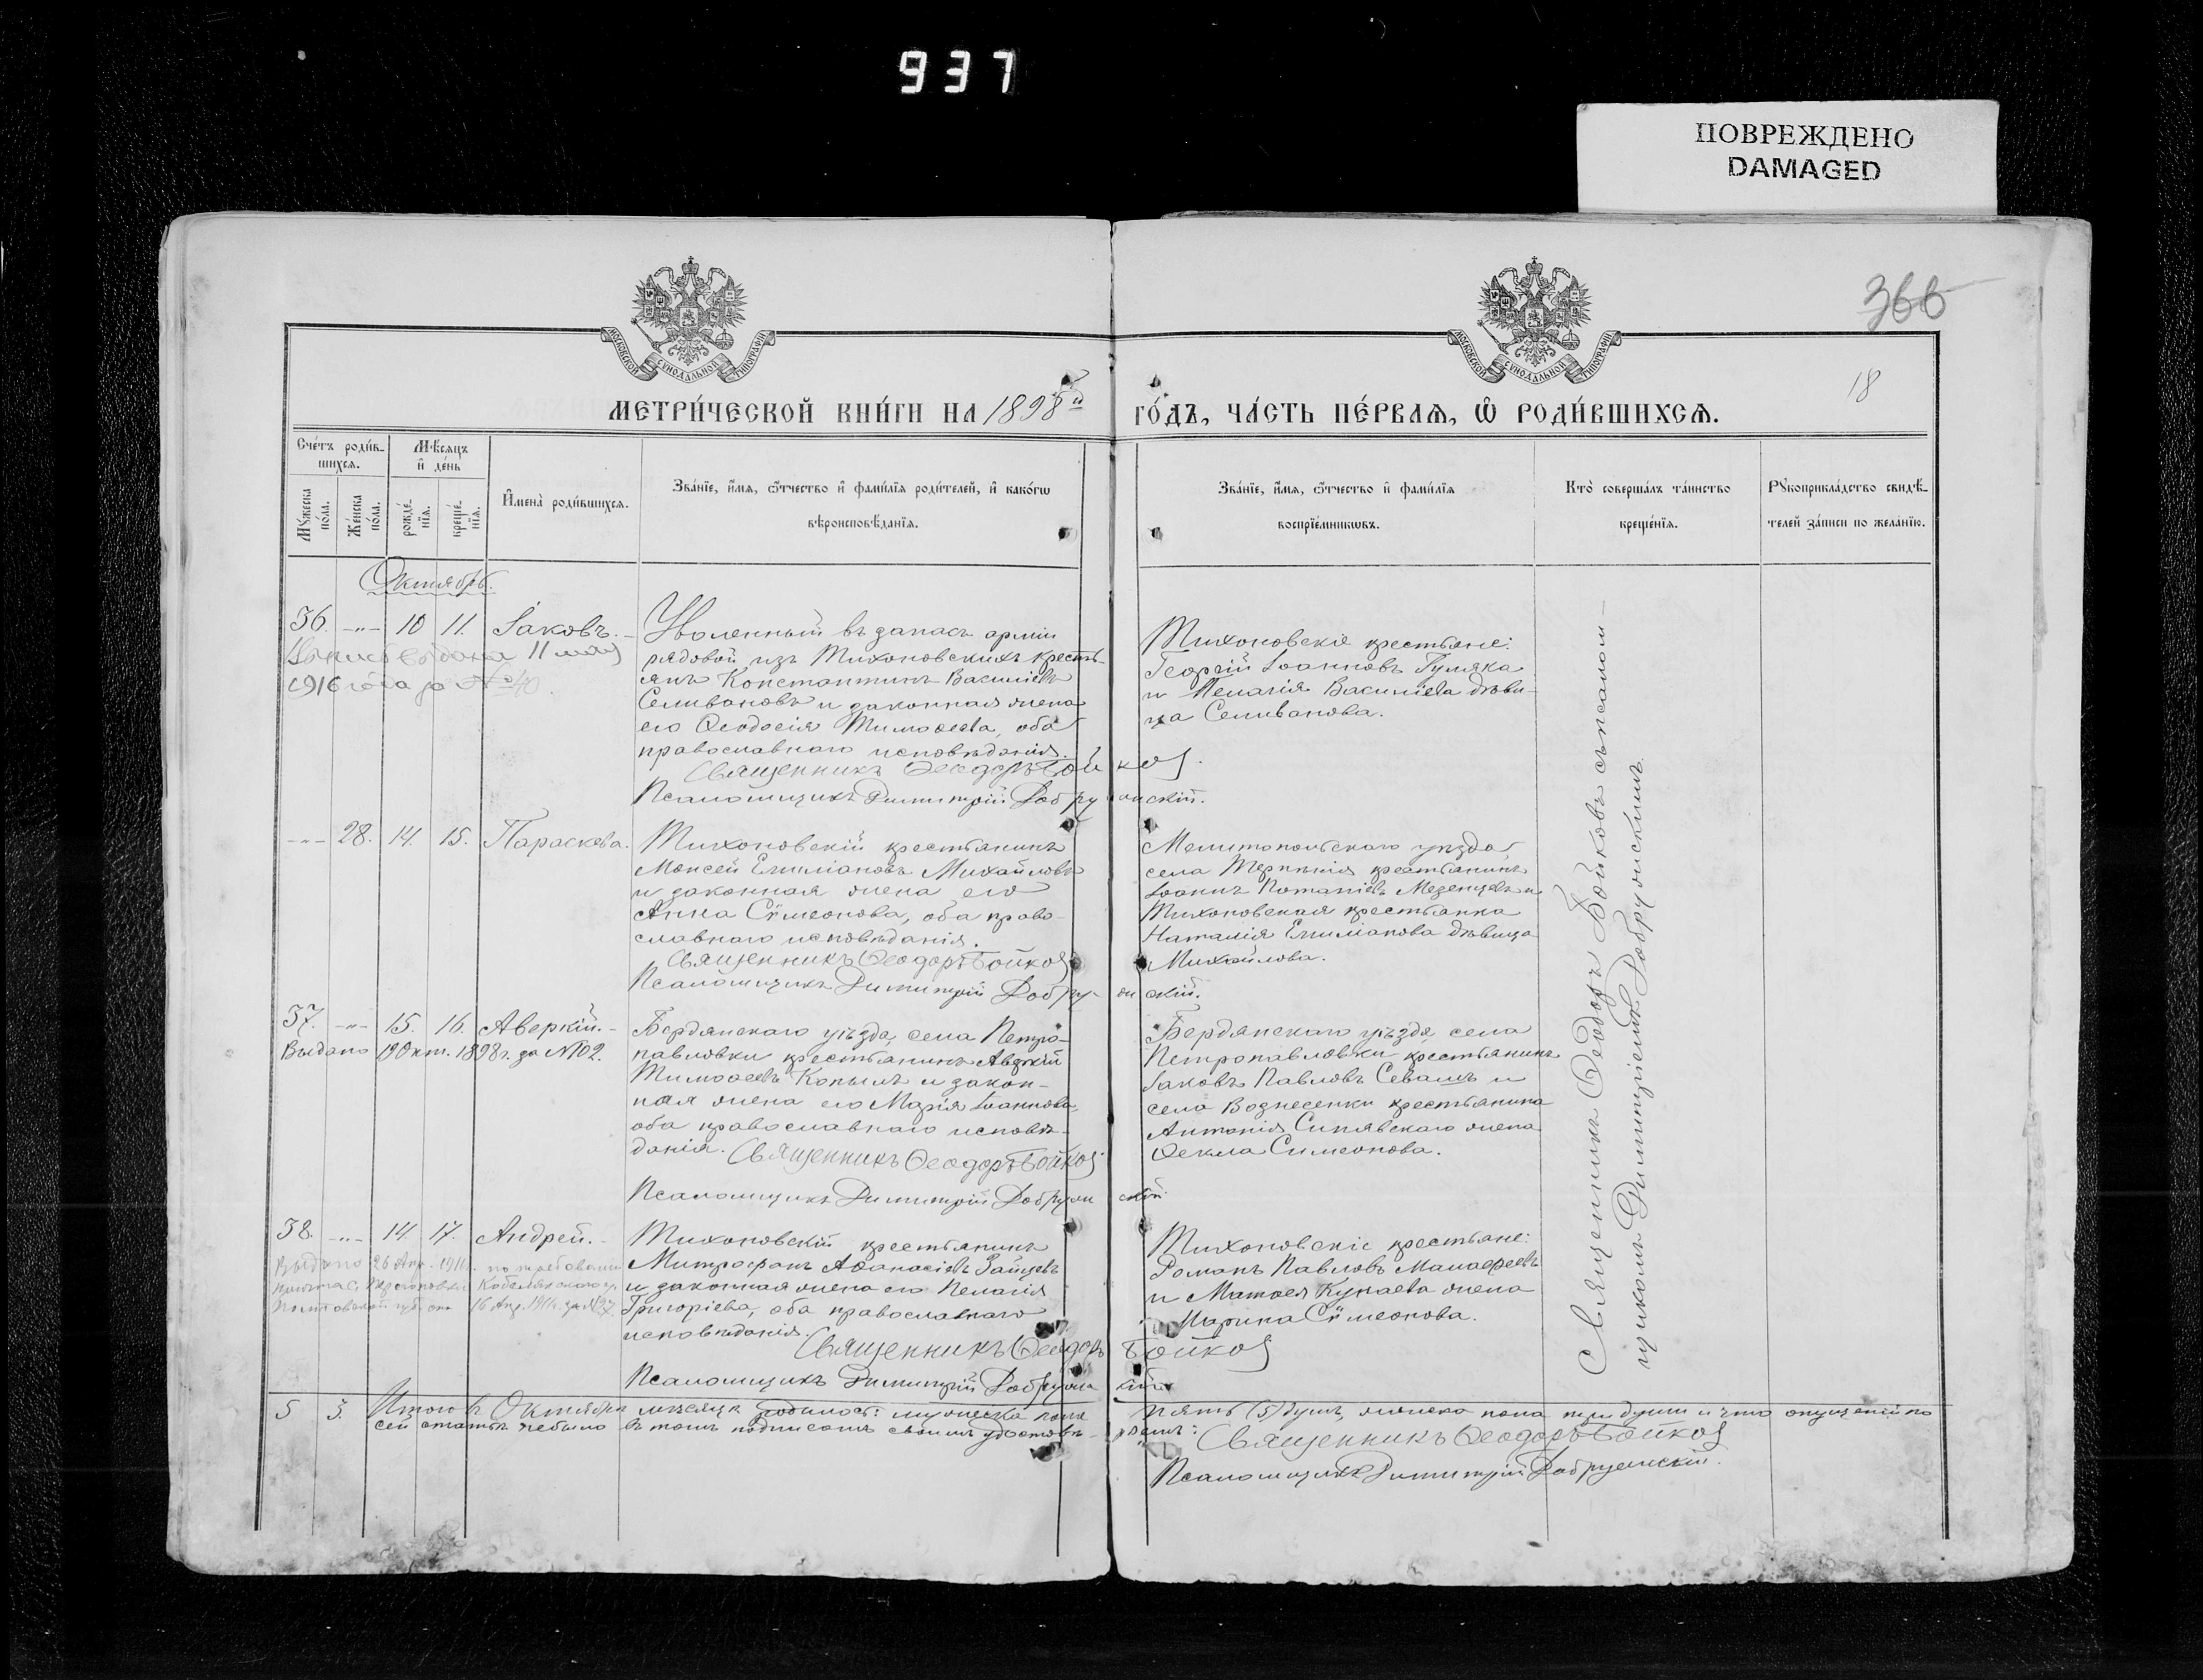 937
ПОВРЕЖДЕНО
DAMAGED
366
18
МОСКОВСКОЙ СѴНОДАЛЬНОЙ ТИПОГРАФІИ
МОСКОВСКОЙ СѴНОДАЛЬНОЙ ТИПОГРАФІИ
МЕТРИ́ЧЕСКОЙ КНИ́ГИ НА 1898й ГО́ДЪ, ЧА́СТЬ ПЕ́РВАѦ, Ѡ РОДИ́ВШИХСѦ.
Сче́тъ роди́в-
шихсѧ.
Мѣ́сѧцъ
и҆ де́нь
Мꙋ́жеска по́ла.
Же́нска по́ла.
рожде́-
нїѧ.
креще́-
нїѧ.
И҆мена̀ роди́вшихсѧ.
Зва́нїе, и҆́мѧ, ѻ҆́тчество и҆ фами́лїѧ роди́телей, и҆ како́гѡ
вѣроисповѣ́данїѧ.
Зва́нїе, и҆́мѧ, ѻ҆́тчество и҆ фами́лїѧ
воспрїе́мникѡвъ.
Кто̀ соверша́лъ та́инство
креще́нїѧ.
Рꙋкоприкла́дство свидѣ́-
телей за́писи по жела́нїю.
Октябрь.
36. -"- 10 11. Іаковъ.-
Выпись выдана 11 мая
1916 года за №40.
Уволенный въ запасъ арміи
рядовой изъ Тихоновскихъ кресть-
янъ Константинъ Василіевъ
Селивановъ и законная жена
его Ѳеодосія Тимоѳеева, оба
православнаго исповѣданія.
Священникъ Ѳеодоръ Бойков
Псаломщикъ Димитрій Добрунскій.
Тихоновскіе крестьяне:
Георгій Іоанновъ Гуляка
и Пелагія Василіева дѣви-
ца Селиванова.
-"- 28. 14. 15. Параскева.
Тихоновскій крестьянинъ
Моисей Емиліановъ Михайловъ
и законная жена его
Анна Сѵмеонова, оба право-
славнаго исповѣданія.
Священникъ Ѳеодоръ Бойков
Псаломщикъ Димитрій Добрунскій.
Мелитопольскаго уѣзда,
села Терпѣнія крестьянинъ
Іоаннъ Потапіевъ Мезенцевъ и
Тихоновская крестьянка
Наталія Емиліанова дѣвица
Михайлова.
37. -"- 15. 16. Аверкій.-
Выдано 19 Окт. 1898 г. за №102.
Бердянскаго уѣзда, села Петро-
павловки крестьянинъ
Тимоѳеевъ Копылъ и закон-
ная жена его Марія Іоаннова,
оба православнаго исповѣ-
данія. Священникъ Ѳеодоръ Бойков
Псаломщикъ Димитрій Добрунскій
Бердянскаго уѣзда, села
Петропавловки крестьянинъ
Іаковъ Павловъ Севашъ и
села Вознесенки крестьянина
Антонія Синявскаго жена
Ѳекла Симеонова.
38. -"- 14. 17. Андрей.-
Выдано 26 Апр. 1914 г. по требованію
Кобелякскаго у.
Полтавской губ. отъ 16 Апр. 1914 г. за №37.
Тихоновскій крестьянинъ
Митрофанъ Аѳанасіевъ Зайцевъ
и законная жена его Пелагія
Григоріева, оба православнаго
исповѣданія.
Священникъ Ѳеодоръ Бойков
Псаломщикъ Димитрій Добрунскій
Тихоновскіе крестьяне:
Романъ Павловъ Малаѳеевъ
и Матѳея Кунаева жена
Марина Сѵмеонова.
Священникъ Ѳеодоръ Бойковъ съ псалом-
щикомъ Димитріемъ Добрунскимъ.
5 3. Итого въ Октябрѣ мѣсяцѣ родилось: мужеска пола пять (5) душъ, женска пола три души и что опущеній по
сей статьѣ небыло въ томъ подписомъ своимъ удостовѣряемъ: Священникъ Ѳеодоръ Бойков
Псаломщикъ Димитрій Добрунскій.